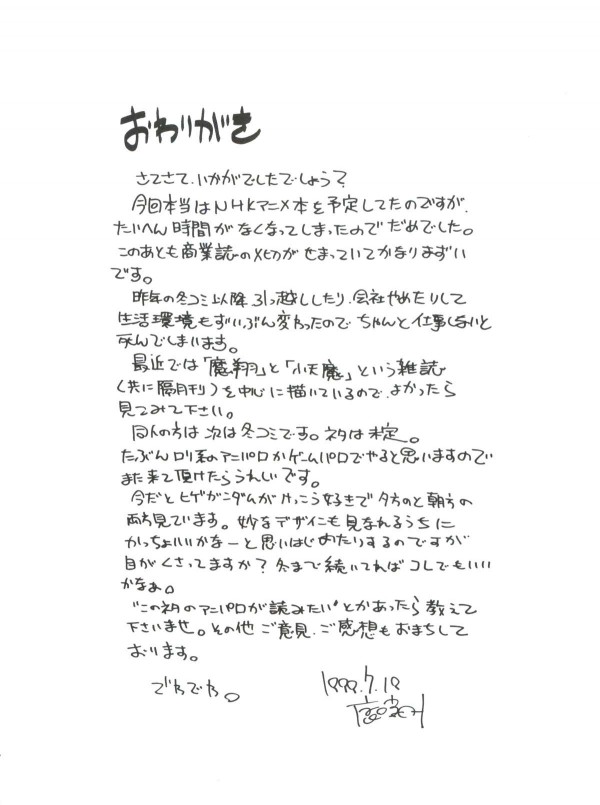 おわりがき
さてさて、いかがでしたでしょう?
今回本当はNHKアニメ本を予定してたのですが、
たいへん時間がなくなってしまったのでだめでした。
このあとも商業誌の〆切がせまっていてかなりまずい
です。
昨年の冬コミ以降 引っ越ししたり、会社やめたりして
生活環境もずいぶん変わったので ちゃんと仕事しないと
死んでしまいます。
最近では「魔翔」と「小天魔」という雑誌
(共に隔月刊)を中心に描いているので、よかったら
見てみて下さい。
同人の方は次は冬コミです。ネタは未定。
たぶんロリ系のアニパロかゲームパロでやると思いますので
また来て頂けたらうれしいです。
今だとヒゲガンダムがけっこう好きで夕方のと朝方の
両方見ています。妙なデザインも見なれるうちに
かっちょいいかなーと思いはじめたりするのですが
目がくさってますか?冬まで続いてればコレでもいい
かなぁ。
"この初のアニパロが読みたい"とかあったら教えて
下さいませ。その他 ご意見、ご感想もおまちして
おります。
でわでわ。
1999.7.19